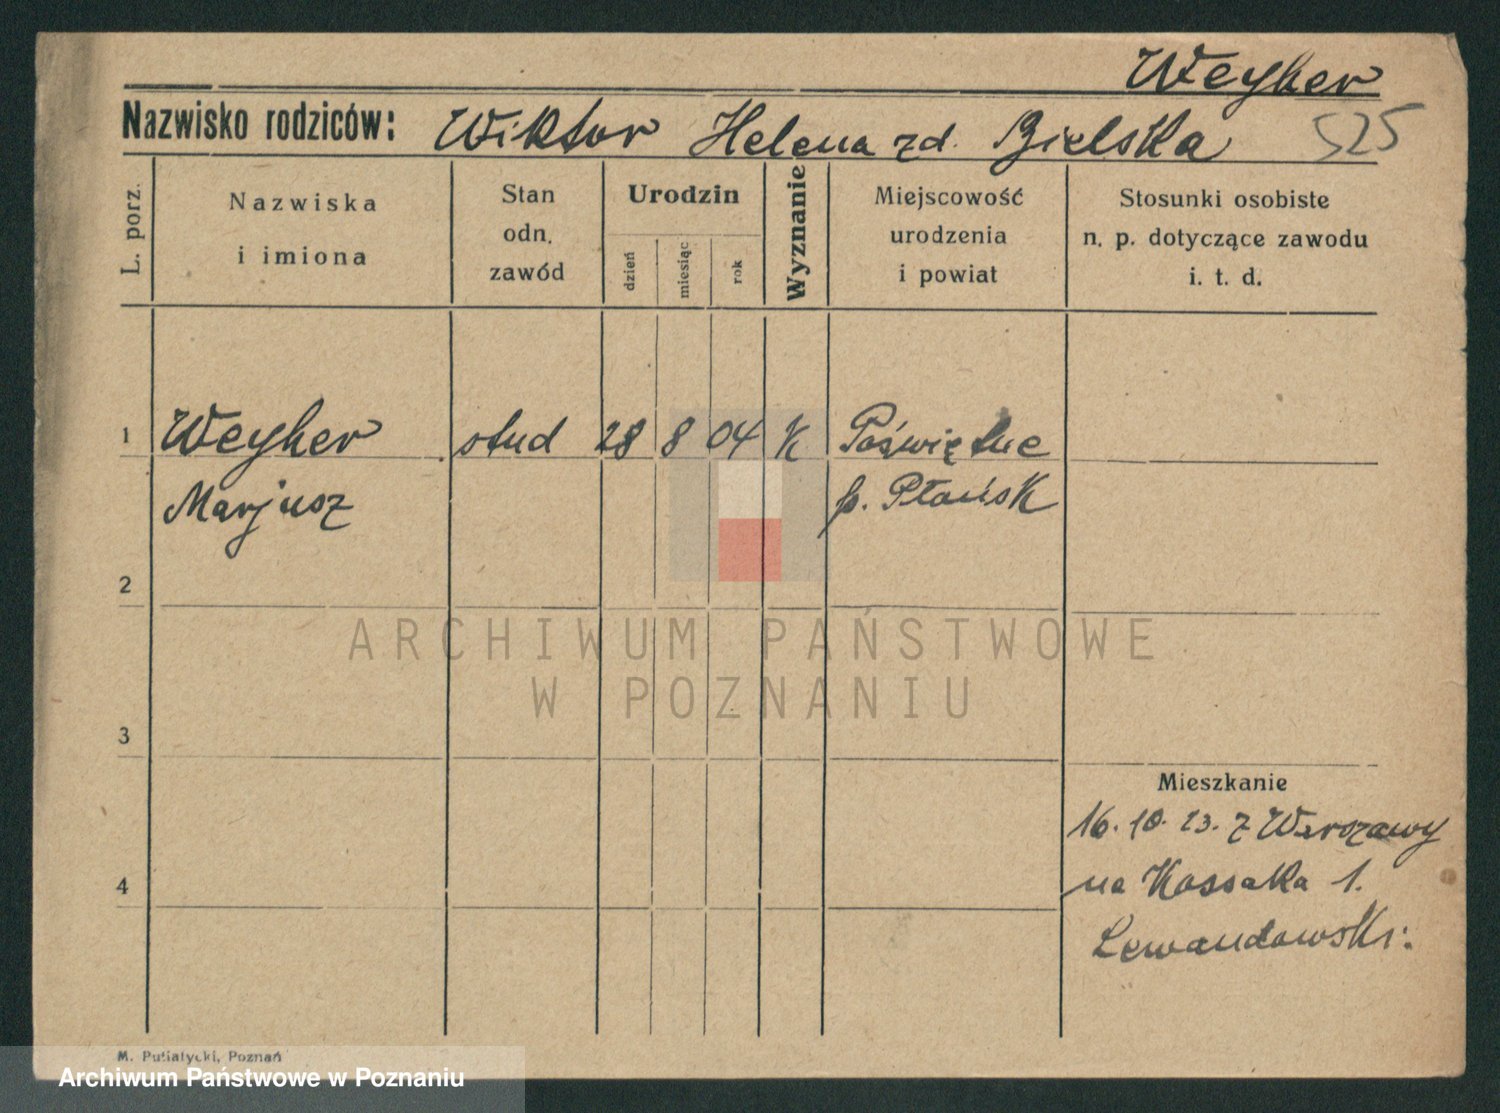 Weyher
Nazwisko rodziców: Wiktor Helena zd. Bielska 525
L. porz.
Nazwiska
i imiona
Stan
odn.
zawód
Urodzin
dzień
miesiąc
rok
Wyznanie
Miejscowość
urodzenia
i powiat
Stosunki osobiste
n. p. dotyczące zawodu
i. t. d.
1 Weyher stud 28 8 04 K Poświętne
Marjusz p. Płońsk
2
ARCHIWUM PAŃSTWOWE
W POZNANIU
3
Mieszkanie
16. 10. 23. z Warszawy
4 na Kossaka 1.
Lewandowski.
M. Putiatycki, Poznań
Archiwum Państwowe w Poznaniu